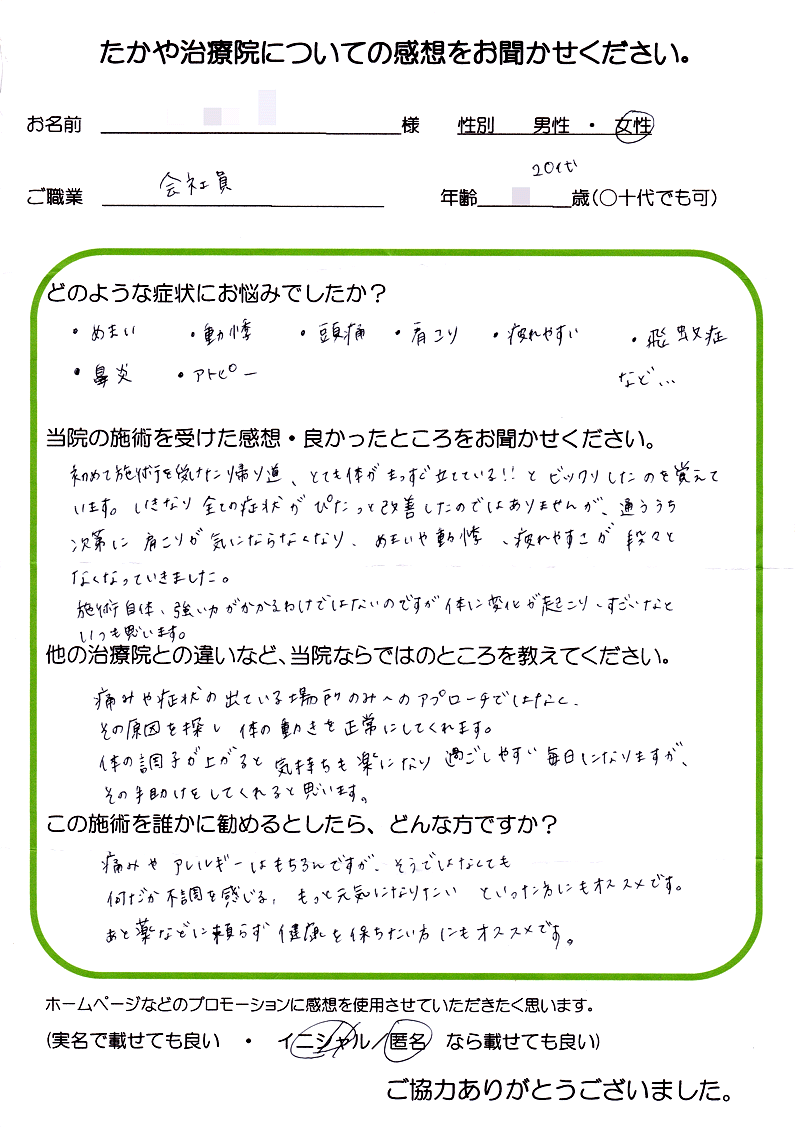 たかや治療院についての感想をお聞かせください。
お名前 様 性別 男性 ・ 女性
20代
ご職業 会社員 年齢 歳(〇十代でも可)
どのような症状にお悩みでしたか？
・めまい ・動悸 ・頭痛 ・肩こり ・疲れやすい ・飛蚊症
・鼻炎 ・アトピー など...
当院の施術を受けた感想・良かったところをお聞かせください。
初めて施術を受けた帰り道、とても体がまっすぐ立てている!!とビックリしたのを覚えて
います。いきなり全ての症状がぴたっと改善したのではありませんが、通ううち
次第に肩こりが気にならなくなり、めまいや動悸、疲れやすさが段々と
なくなっていきました。
施術自体、強い力がかかるわけではないのですが体に変化が起こり、すごいなと
いつも思います。
他の治療院との違いなど、当院ならではのところを教えてください。
痛みや症状の出ている場所のみへのアプローチではなく、
その原因を探し体の動きを正常にしてくれます。
体の調子が上がると気持ちも楽になり過ごしやすい毎日になりますが、
その手助けをしてくれると思います。
この施術を誰かに勧めるとしたら、どんな方ですか？
痛みやアレルギーはもちろんですが、そうではなくても
何だか不調を感じる、もっと元気になりたいといった方にもオススメです。
あと薬などに頼らず健康を保ちたい方にもオススメです。
ホームページなどのプロモーションに感想を使用させていただきたく思います。
(実名で載せても良い ・ イニシャル／匿名 なら載せても良い)
ご協力ありがとうございました。